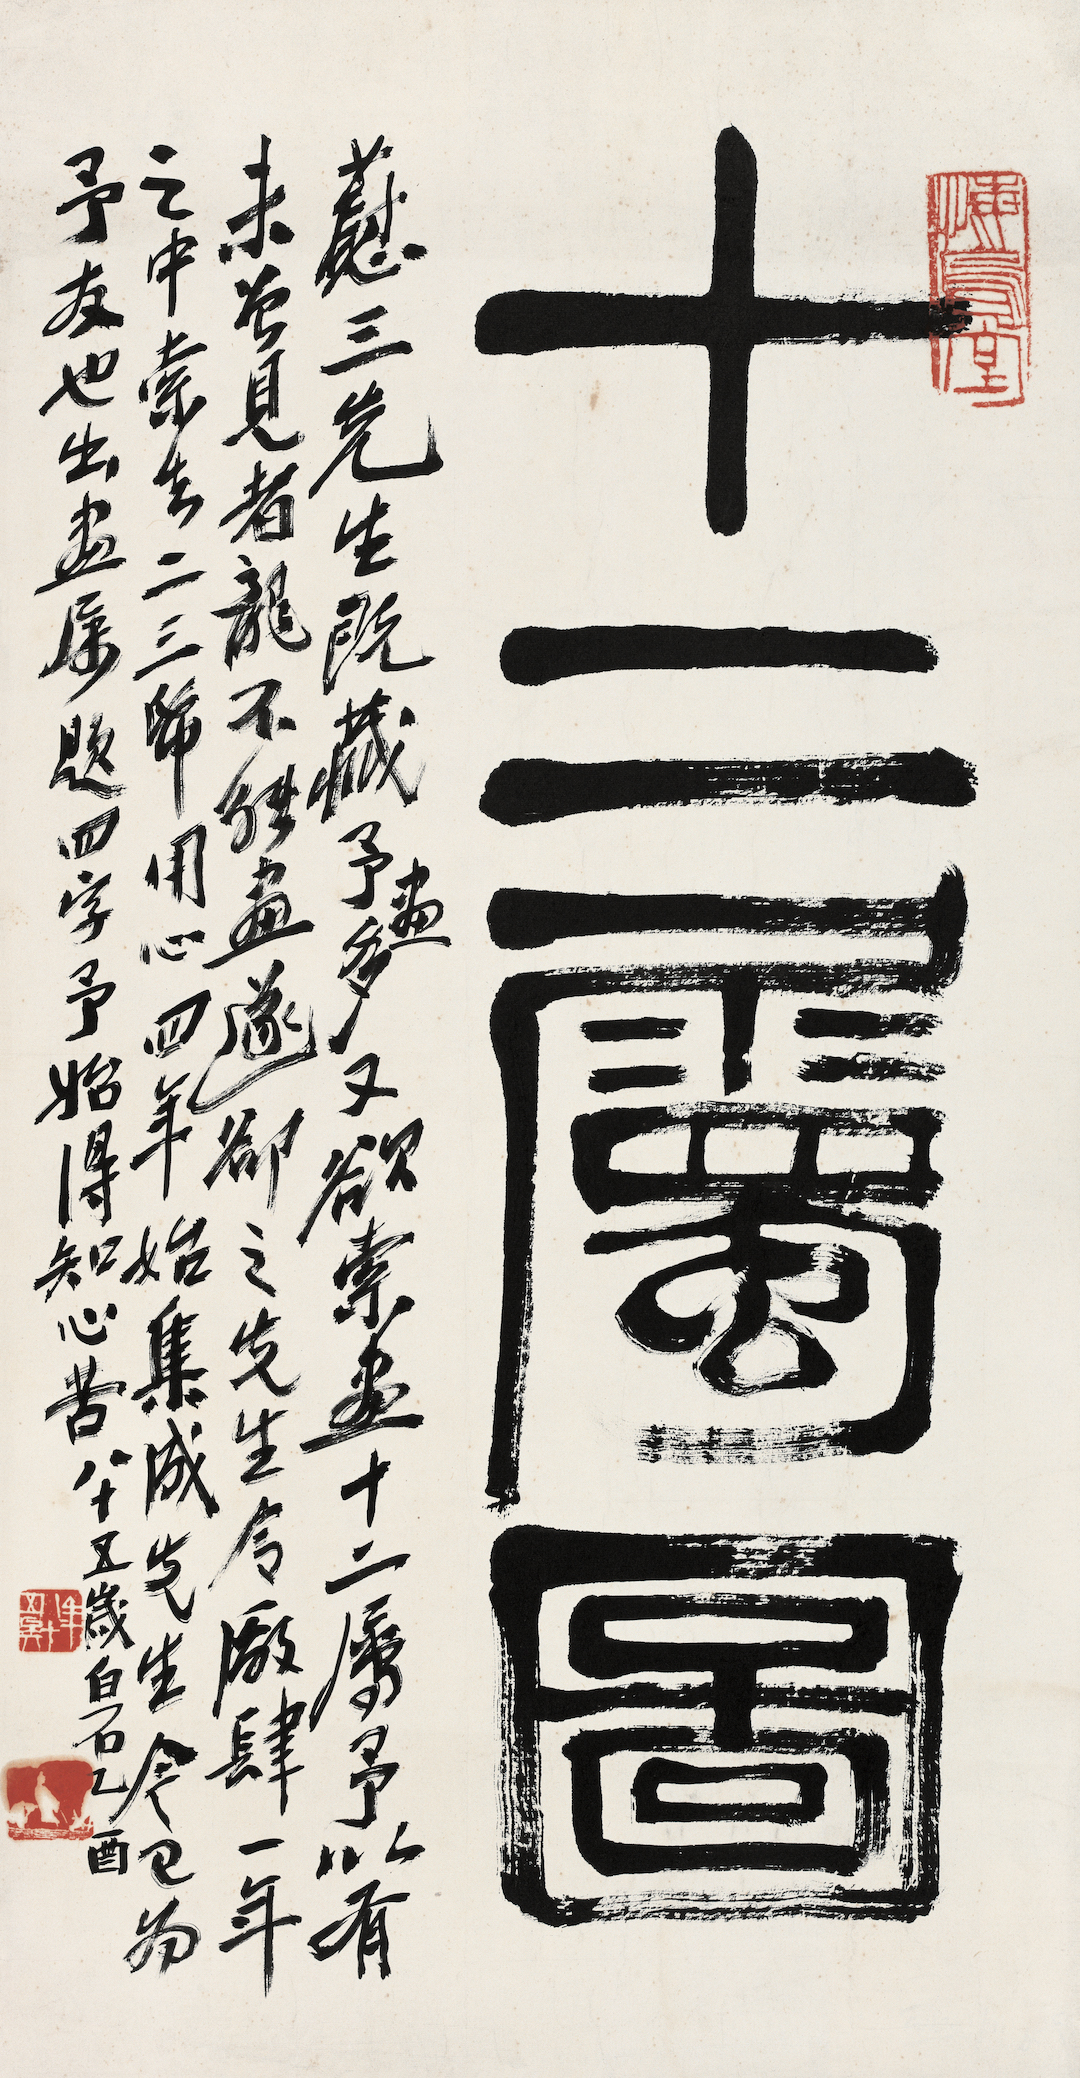 十二属圖
蔭三先生既藏予畫多又欲索畫十二屬予以有
未曾見者龍不能畫遂卻之先生令廠肆一年
之中索去二三幅用心四年始集成先生今已為
予友也出畫属題四字予始得知心苦八十五歲白石乙酉